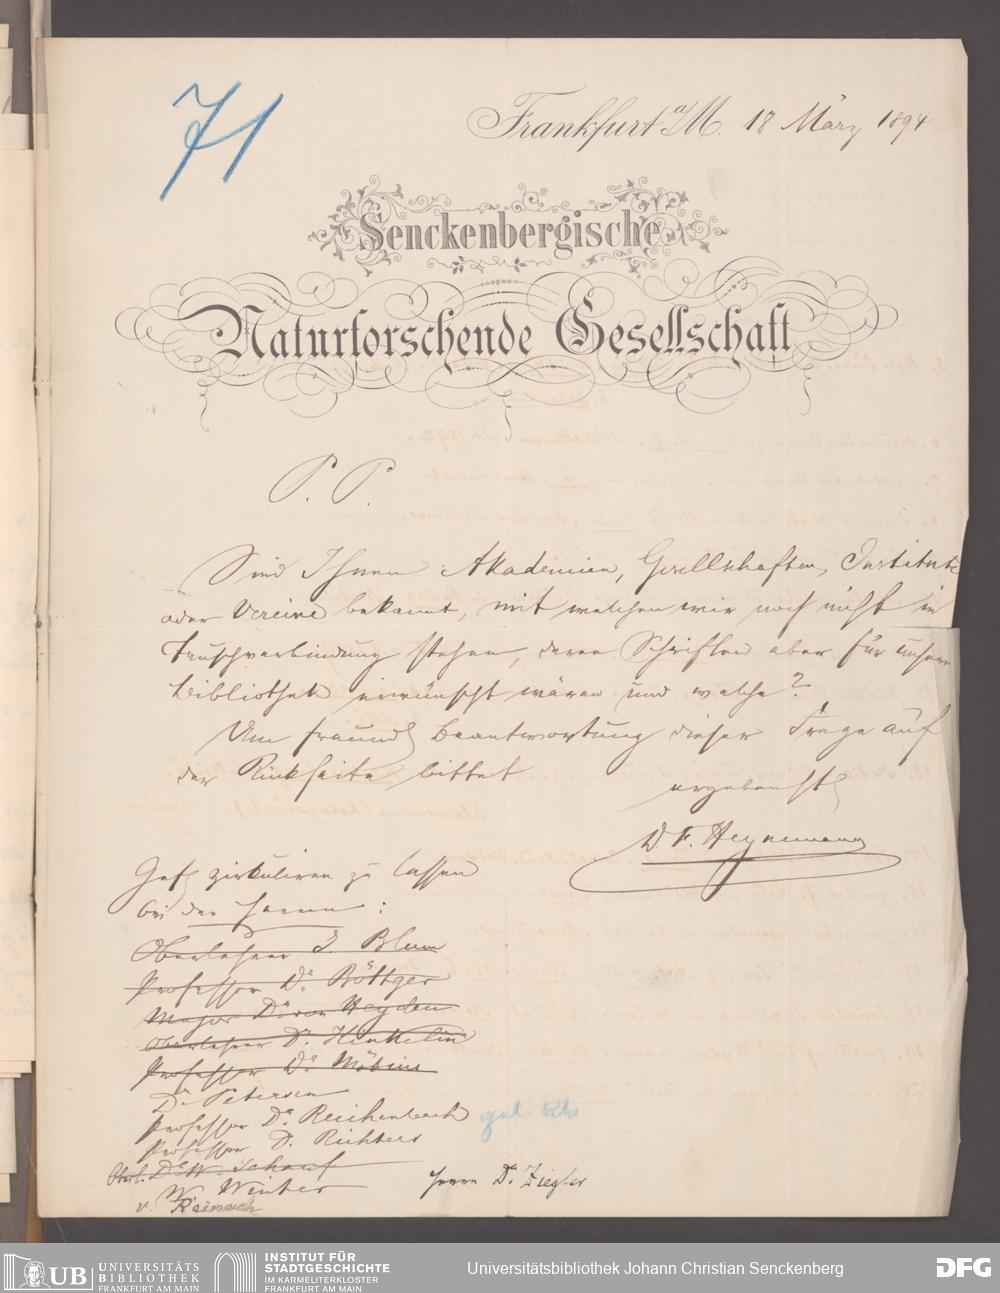 71
Frankfurt a/M. 18 März 1894
Senckenbergische
Naturforschende Gesellschaft
P. P.
Sind Ihnen Akademien, Gesellschaften, Institute
oder Vereine bekannt, mit welchen wir noch nicht in
Tauschverbindung stehen, deren Schriften aber für unsere
Bibliothek erwünscht wären und welche?
Um freundl Beantwortung dieser Frage auf
der Rückseite bittet
ergebenst
D F. Heynemann
Gefl zirkuliren zu lassen
bei den Herren:
Oberlehrer J. Blum
Professor Dr. Böttger
Major Dr. von Heyden
Oberlehrer Dr. Kinkelin
Professor Dr. Möbius
Dr. Petersen
Professor Dr. Reichenbach
Professor D. Richters
Oberl. Dr W. Schauf
W. Winter
v. Reinach
Herrn Dr. Ziegler
UB UNIVERSITÄTS
BIBLIOTHEK
FRANKFURT AM MAIN
INSTITUT FÜR
STADTGESCHICHTE
IM KARMELITERKLOSTER
FRANKFURT AM MAIN
Universitätsbibliothek Johann Christian Senckenberg
DFG